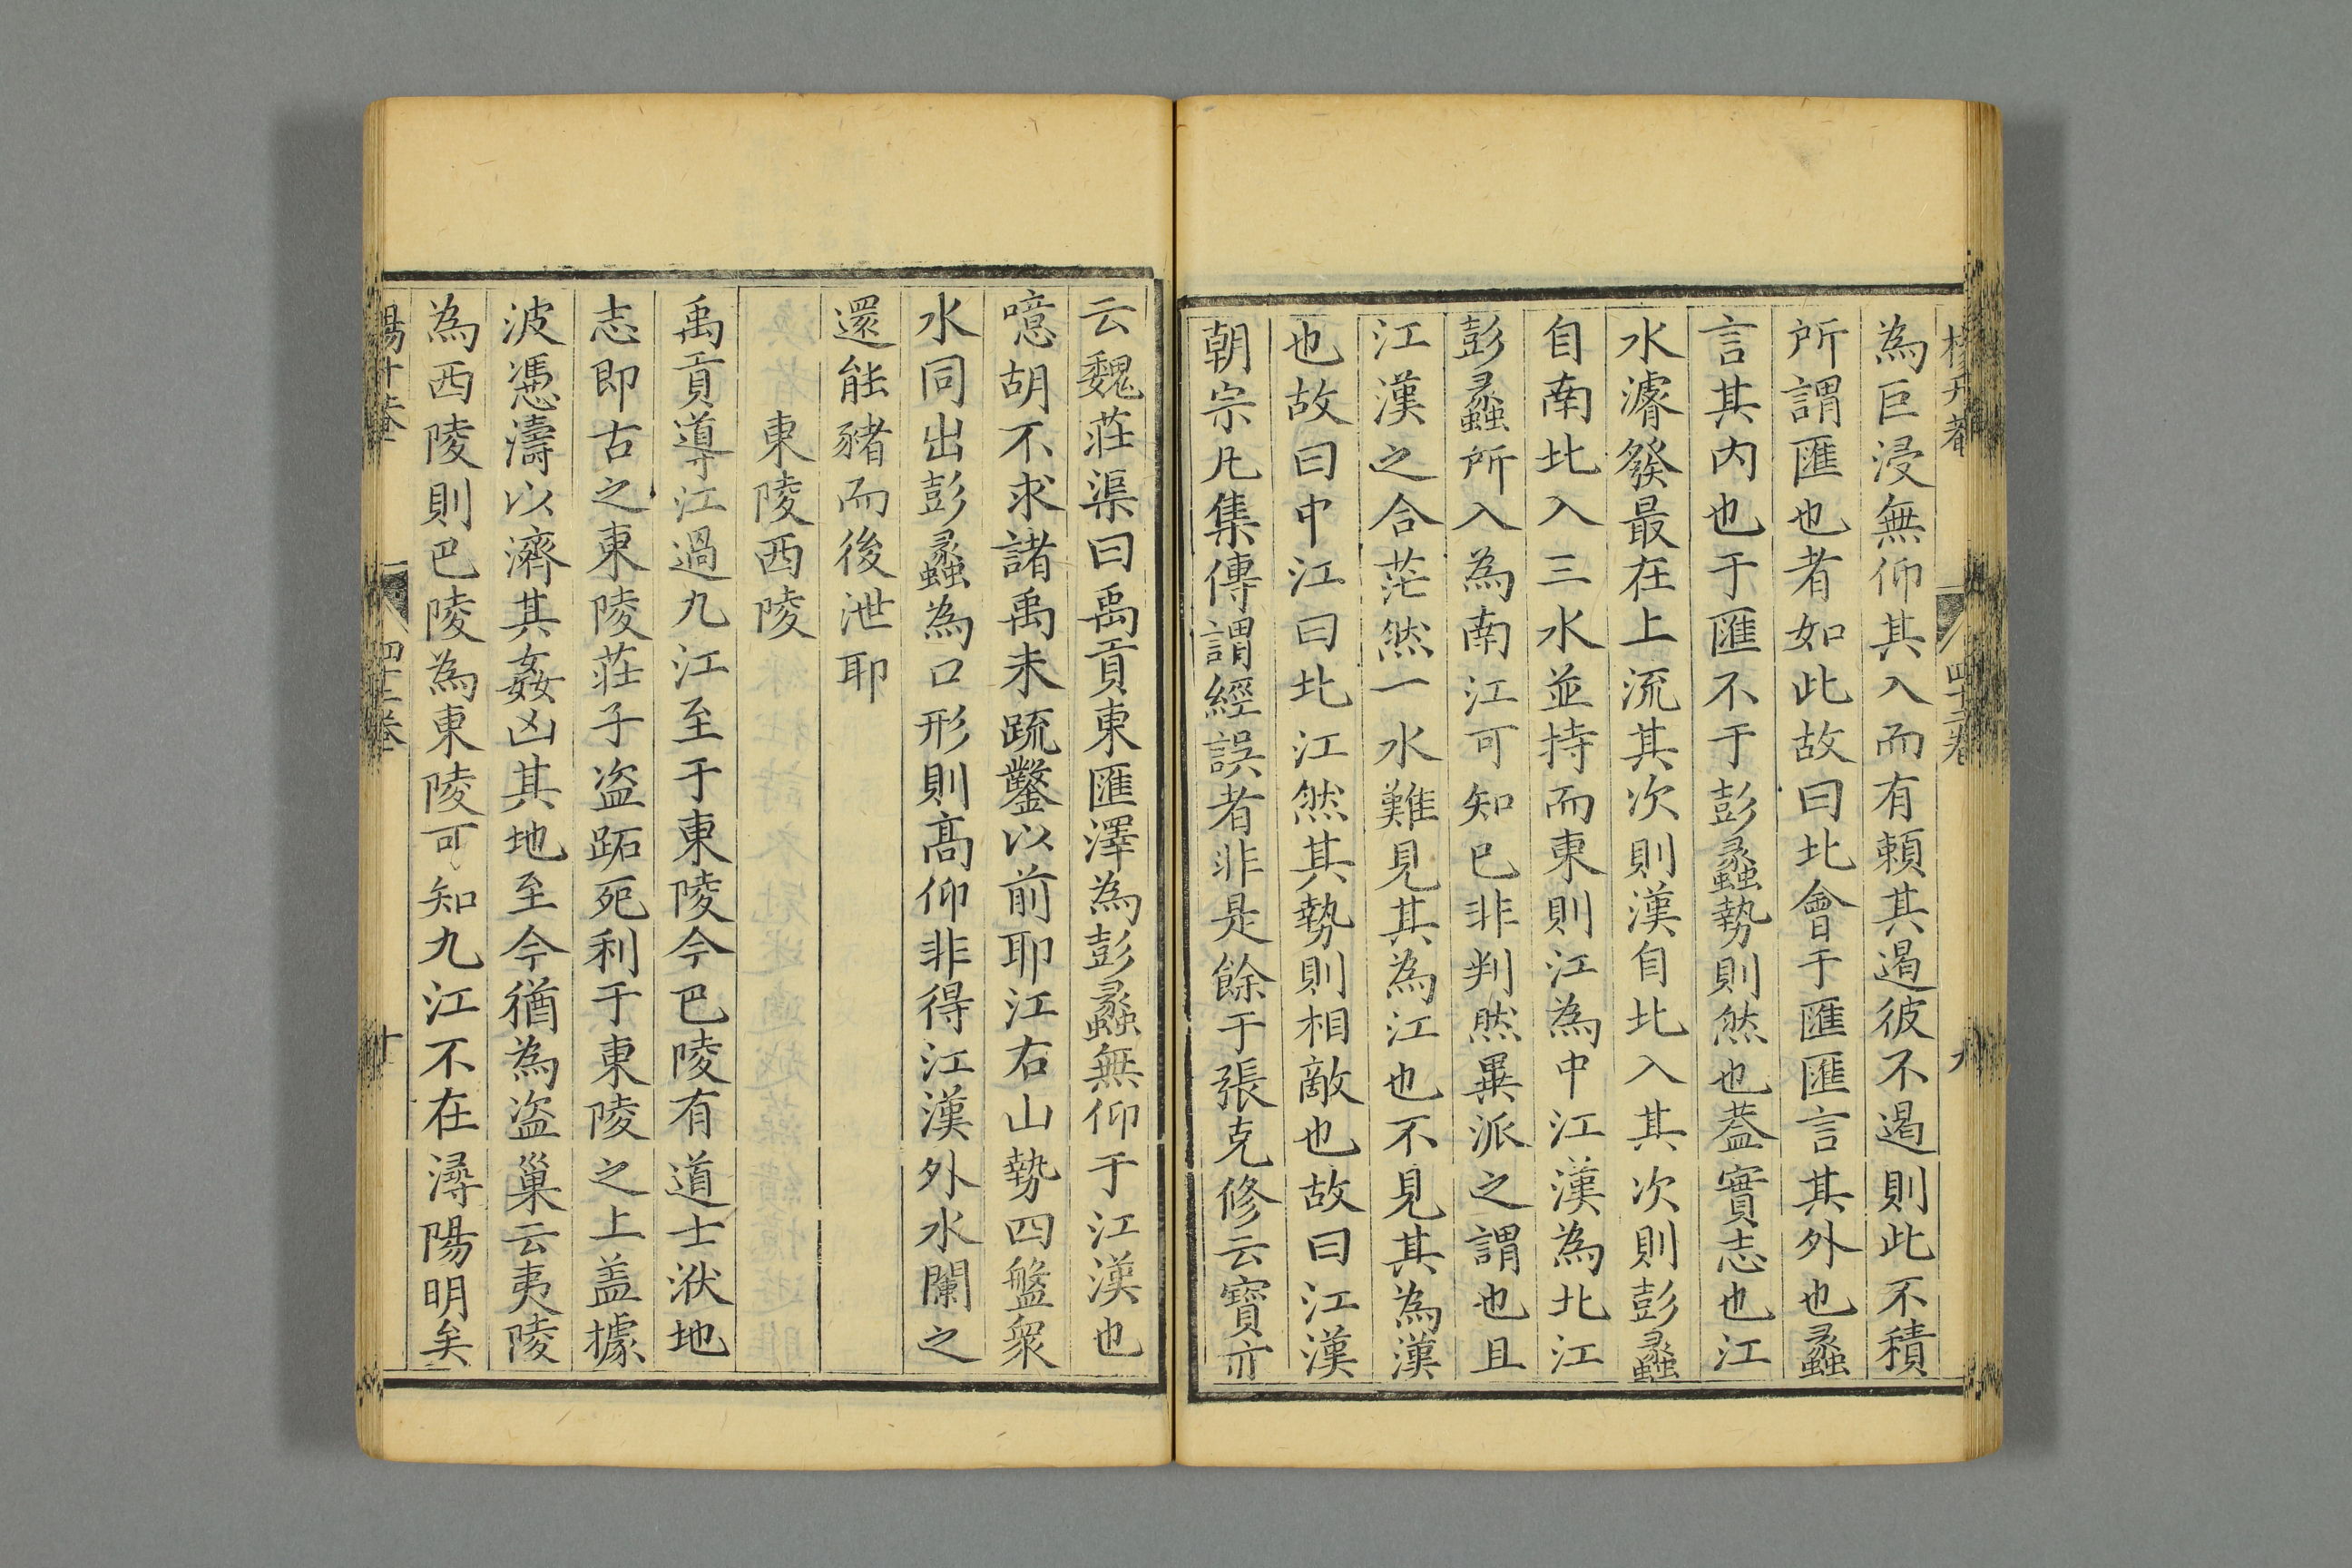 為巨浸無仰其入而有賴其遏彼不遏則此不積
所謂匯也者如此故曰北會于匯匯言其外也蠡
言其內也于匯不于彭蠡勢則然也葢實志也江
水濬發最在上流其次則漢自北入其次則彭蠡
自南北入三水並持而東則江為中江漢為北江
彭蠡所入為南江可知巳非判然異派之謂也且
江漢之合茫然一水難見其為江也不見其為漢
也故曰中江曰北江然其勢則相敵也故曰江漢
朝宗凡集傳謂經誤者非是餘于張克修云寳亦
云魏莊渠曰禹貢東匯澤為彭蠡無仰于江漢也
噫胡不求諸禹未疏鑿以前耶江右山勢四盤衆
水同出彭蠡為口形則高仰非得江漢外水闌之
還能豬而後泄耶
東陵西陵
禹貢導江過九江至于東陵今巴陵有道士洑地
志即古之東陵莊子盗跖死利于東陵之上盖據
波憑濤以濟其姦凶其地至今猶為盗巢云夷陵
為西陵則巴陵為東陵可知九江不在潯陽明矣